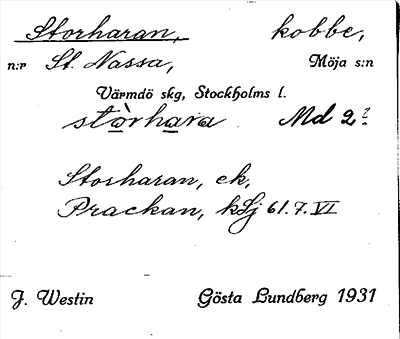 Storharan, kobbe,
n:r St. Nassa, Möja s:n
Värmdö skg, Stockholms l.
stòrhara Md 2?
Storharan, ek,
Prackan, kSj 61.7.VI
J. Westin Gösta Lundberg 1931